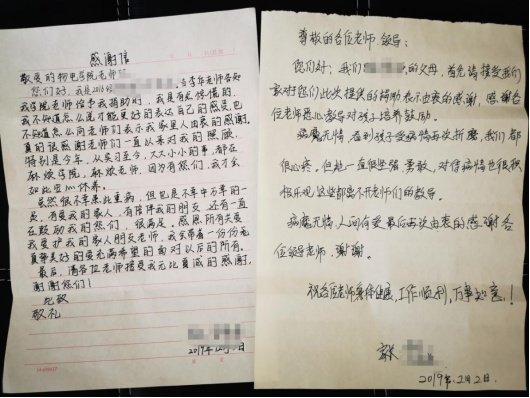 感谢信
敬爱的物电学院老师
您们好,我是2018
我学院老师给予我捐助时,我是有些惊慌的,
我不知道怎么说才能更好的表达自己的感受也
不知道怎么向老师们表示我家里人由衷的感谢,
真的很感谢老师们一直以来对我的照顾,
特别是今年,从实习至今,大大小小的事,都在
麻烦学院,麻烦老师,因为有您们,我才会
如此安心休养。
虽然很不幸患此重病,但也是不幸中万幸的一
员,有爱我的家人,有陪伴我的朋友还有一直
在鼓励我的您们,很满足。感恩所有关爱
我爱护我的家人朋友老师,我会带着一份份无
真挚美好的爱充满希望的面对以后的所有。
最后,请各位老师接受我无比真诚的感谢,
谢谢您们!
此致
敬礼
2019年12月
尊敬的各位老师、领导:
您们好:我们 的父母,首先请接受我们
家对你们此次提供的捐助表示由衷的感谢,感谢各
位老师悉心教导对孩子培养鼓励。
病魔无情,看到孩子受病痛再次折磨,我们都
很心疼。但她一直很坚强、勇敢,对待病情也积极
很乐观,这些都离不开老师们的教导。
病魔无情,人间有爱,最后再次由衷的感谢各
位领导老师,谢谢。
祝各位老师身体健康,工作顺利,万事如意!
家长
2019年12月2日